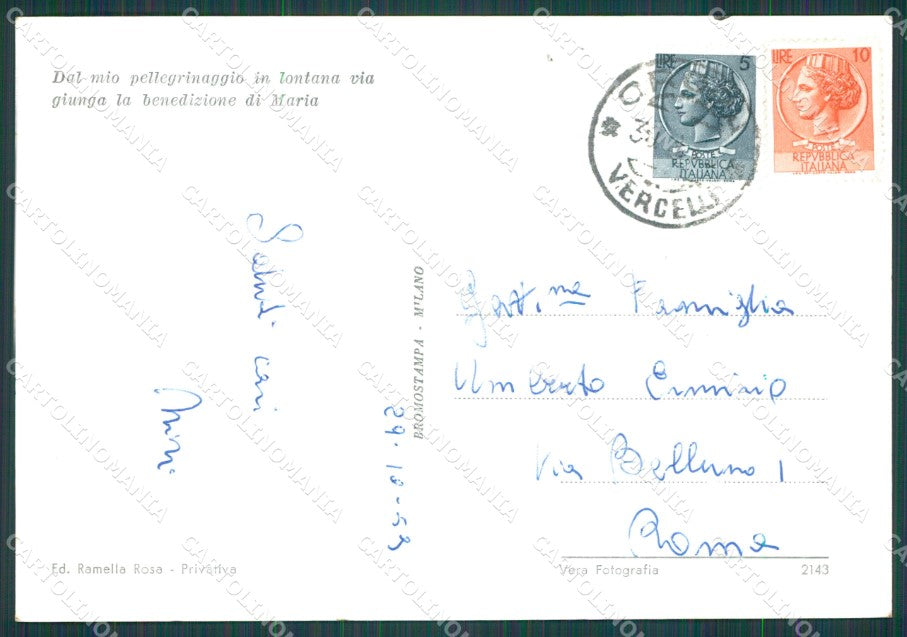 Dal mio pellegrinaggio in lontana via
giunga la benedizione di Maria
LIRE 5
POSTE
REPVBBLICA
ITALIANA
LIRE 10
POSTE
REPVBBLICA
ITALIANA
VERCELLI
Saluti cari
BROMOSTAMPA - MILANO
29-10-53
Gent.ma Famiglia
Umberto
Via Belluno 1
Roma
Ed. Ramella Rosa - Privativa
Vera Fotografia
2143
CARTOLINOMANIA